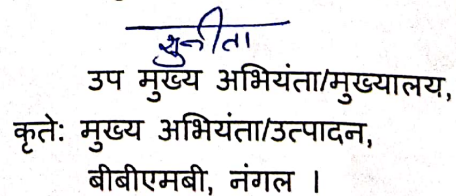 सुनीता
उप मुख्य अभियंता/मुख्यालय,
कृते: मुख्य अभियंता/उत्पादन,
बीबीएमबी, नंगल ।